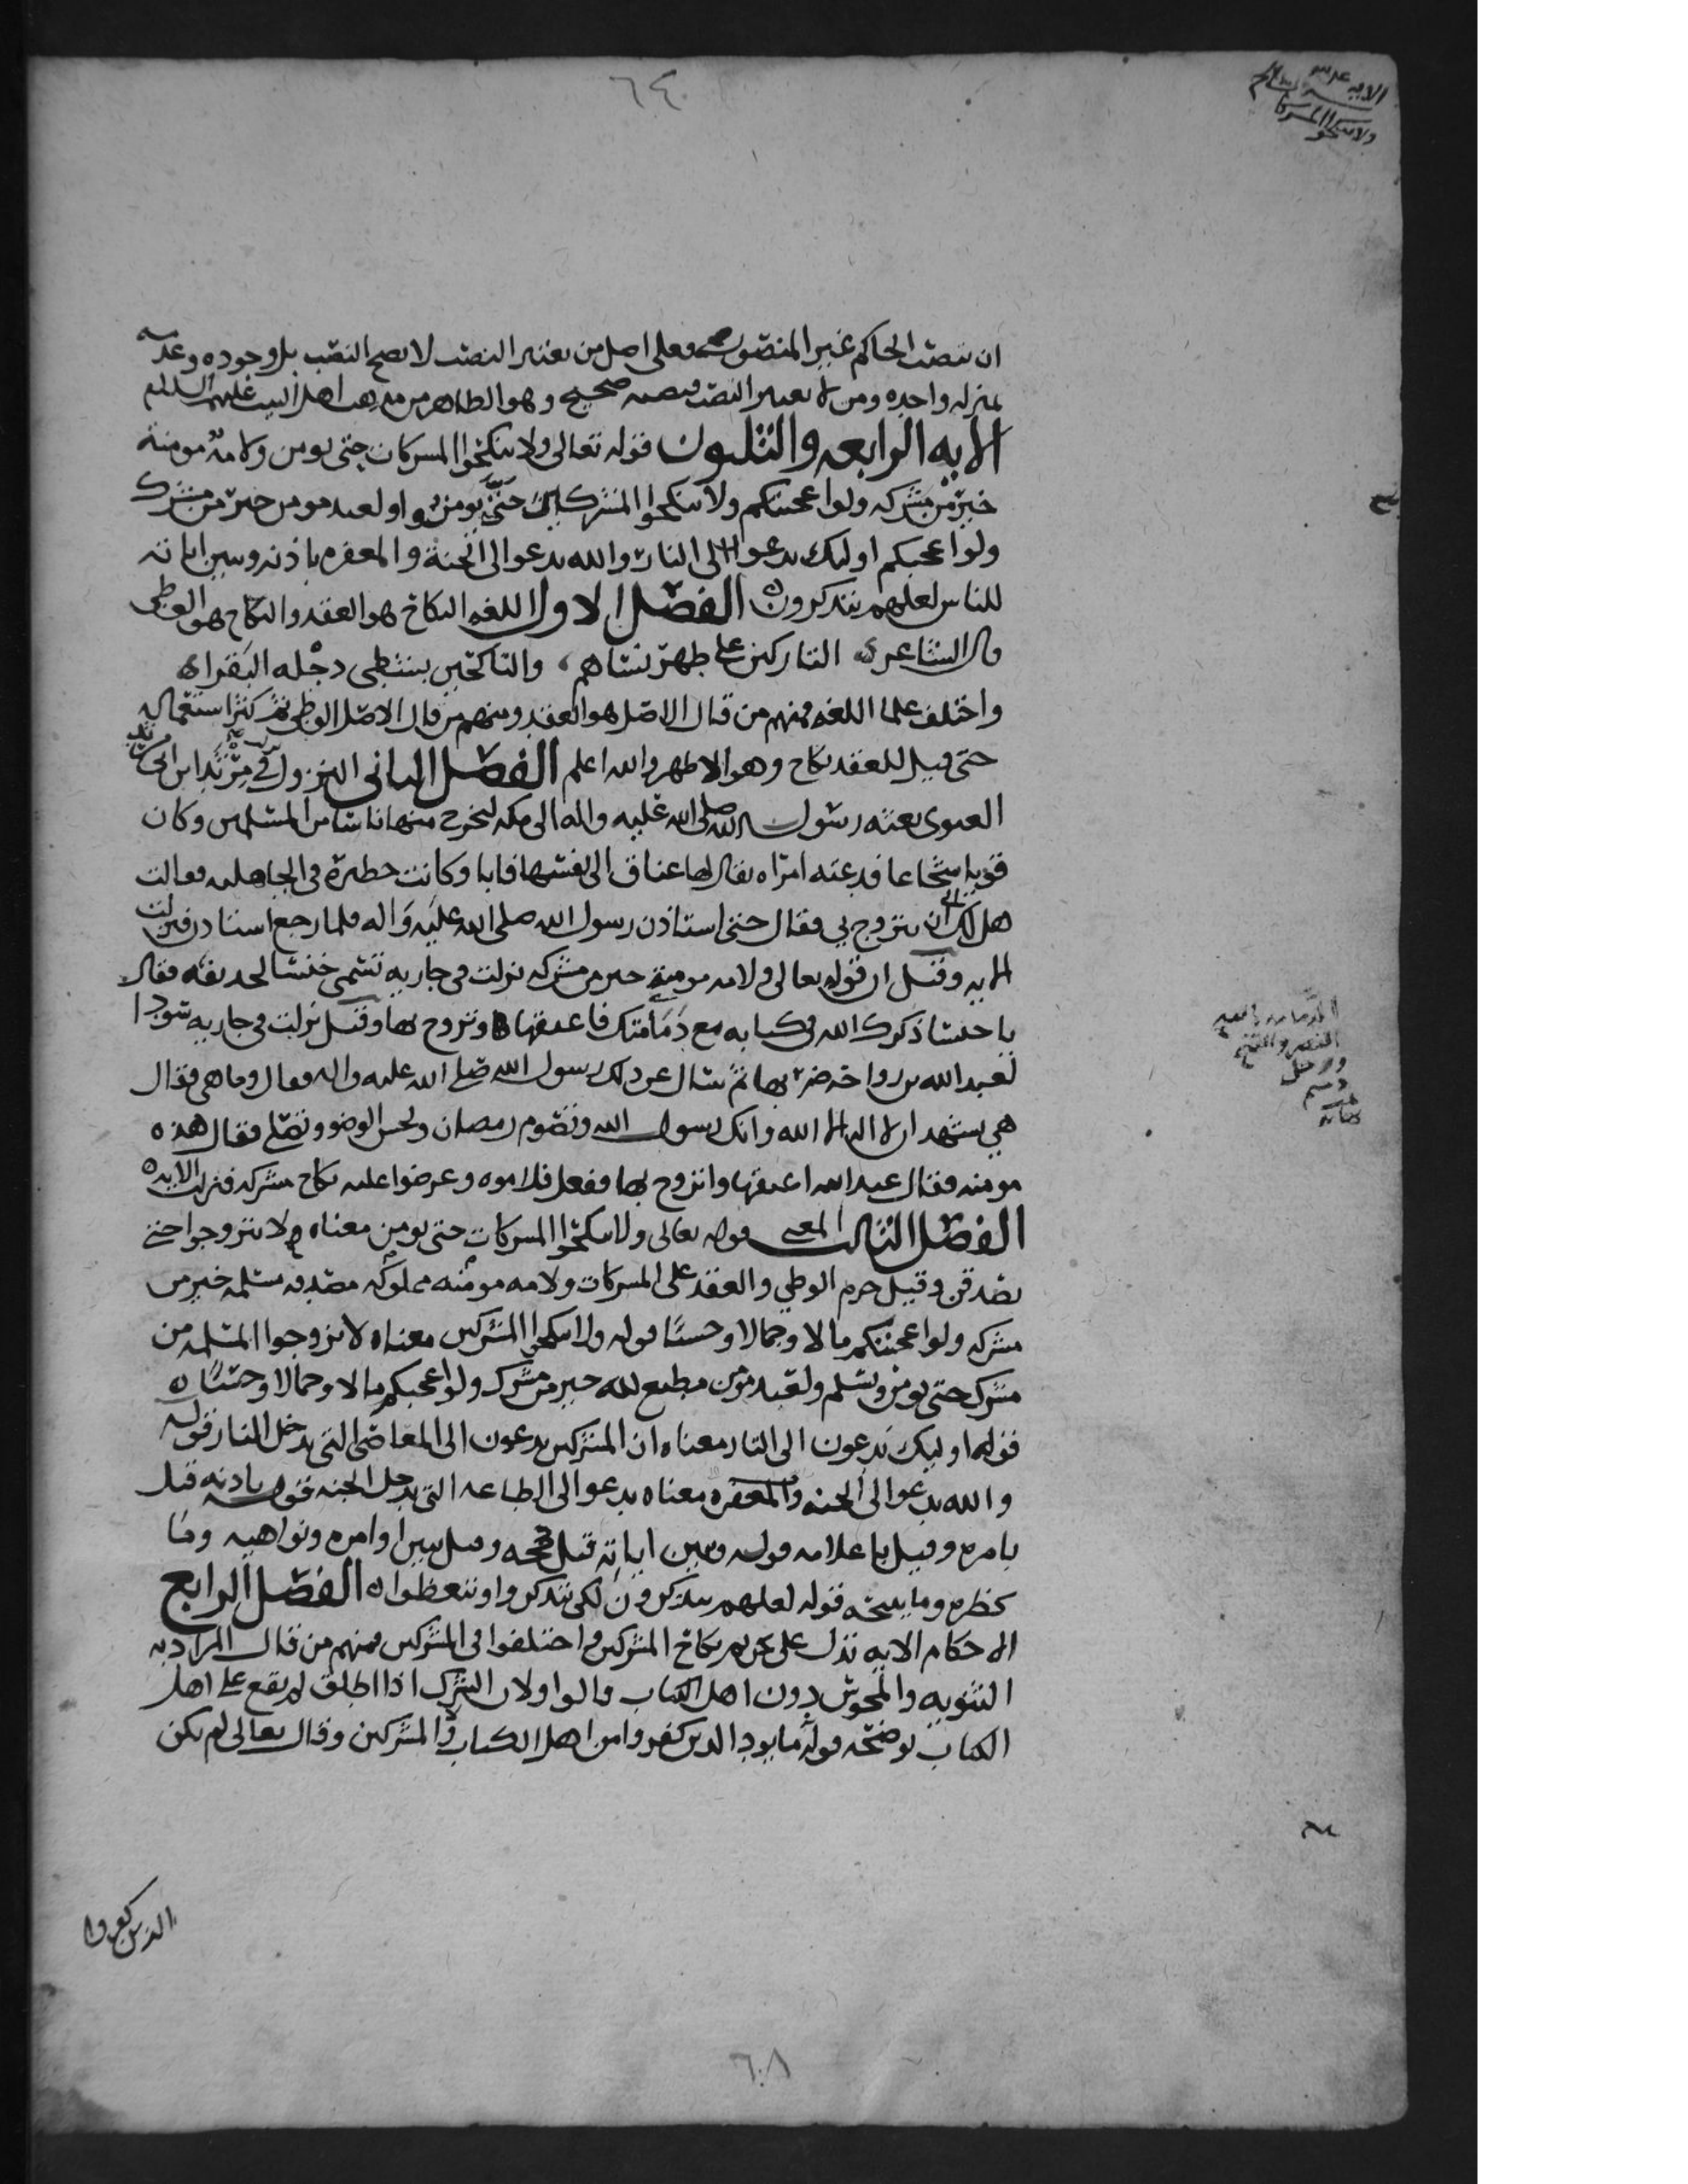 ٦٤
ولا تنكحوا المشركات
ان ينصب الحاكم غير المنصوب فعلى اصل من يعتبر النصب لا يصح النصب بل وجوده وعدمه
بمنزله واحده ومن لا يعتبر النصب فنصبه صحيح وهو الظاهر من مذهب اهل البيت عليهم السلام
الايه الرابعه والثلثون قوله تعالى ولا تنكحوا المشركات حتى يومن ولامة مومنة
خير من مشركه ولو اعجبتكم ولا تنكحوا المشركين حتى يومنوا ولعبد مومن خير من مشرك
ولو اعجبكم اوليك يدعوا الى النار والله يدعو الى الجنة والمغفره باذنه ويبين اياته
للناس لعلهم يتذكرون الفصل الاول اللغه النكاح هو العقد والنكاح هو الوطي
قال الشاعر التاركين على طهر نساهم والناكحين بشطي دجله البقرا
واختلف علما اللغه فمنهم من قال الاصل هو العقد ومنهم من قال الاصل الوطي ثم كثر استعماله
حتى قيل للعقد نكاح وهو الاظهر والله اعلم الفصل الثاني النزول نزلت في مرثد بن ابي مرثد
الغنوي بعثه رسول الله صلى الله عليه واله الى مكه ليخرج منها ناسا من المسلمين وكان
قويا شجاعا فدعته امراه يقال لها عناق الى نفسها فابا وكانت خطيرة في الجاهليه فقالت
هل لك الى ان تتزوج بي فقال حتى استاذن رسول الله صلى الله عليه واله فلما رجع استاذن فنزلت
الايه وقيل ان قوله تعالى ولامه مومنة خير من مشركه نزلت في جاريه تسمى خنسا لحذيفه فقال
يا خنسا ذكرك الله في كتابه مع دمامتك فاعتقها وتزوج بها وقيل نزلت في جاريه سودا
لعبد الله بن رواحه ضربها ثم سال عن ذلك رسول الله صلى الله عليه واله فقال وما هي فقال
هي تشهد ان لا اله الا الله وانك رسول الله وتصوم رمضان وتحسن الوضو وتصلي فقال هذه
مومنه فقال عبد الله اعتقها واتزوج بها ففعل فلاموه وعرضوا عليه نكاح مشركه فنزلت الايه
الفصل الثالث المعنى قوله تعالى ولا تنكحوا المشركات حتى يومن معناه ولا تتزوجوا حتى
يصدقن وقيل حرم الوطي والعقد على المشركات ولامه مومنه مملوكه مصدقه مسلمه خير من
مشركه ولو اعجبتكم مالا وجمالا وحسنا قوله ولا تنكحوا المشركين معناه لا تزوجوا المسلمه من
مشرك حتى يومن ويسلم ولعبد مومن مطيع لله خير من مشرك ولو اعجبكم مالا وجمالا وحسنا
قوله اوليك يدعون الى النار معناه ان المشركين يدعون الى المعاصي التي تدخل النار قوله
والله يدعوا الى الجنه والمغفره معناه يدعو الى الطاعه التي تدخل الجنه قوله باذنه قيل
بامره وقيل باعلامه قوله ويبين اياته قيل حججه وقيل يبين اوامره ونواهيه وما
يحظره وما يبيحه قوله لعلهم يتذكرون لكي يتذكروا ويتعظوا الفصل الرابع
الاحكام الايه تدل على تحريم نكاح المشركين واختلفوا في المشركين فمنهم من قال المراد به
الثنويه والمجوس دون اهل الكتاب قالوا ولان الشرك اذا اطلق لم يقع على اهل
الكتاب يوضحه قوله ما يود الذين كفروا من اهل الكتاب ولا المشركين وقال تعالى لم يكن
الذين كفروا
٦٠٨